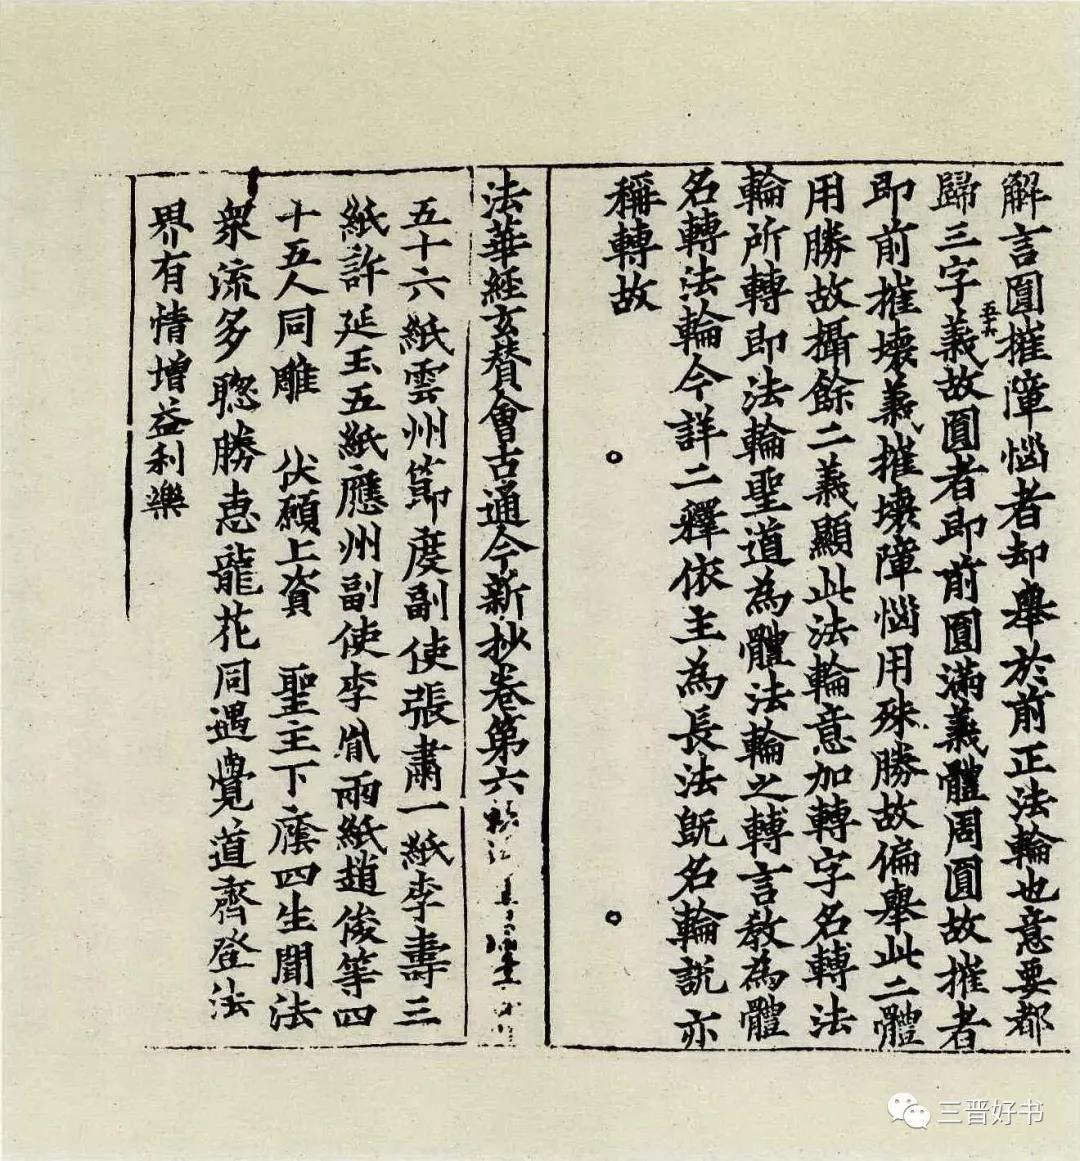 解言圎摧障惱者却舉於前正法輪也意要都
歸三字義故圎者即前圎滿義體周圎故摧者
五六
即前摧壞義摧壞障惱用殊勝故偏舉此二體
用勝故攝餘二義顯此法輪意加轉字名轉法
輪所轉即法輪聖道為體法輪之轉言教為體
名轉法輪今詳二釋依主為長法旣名輪說亦
稱轉故
法華經玄贊會古通今新抄卷第六
五十六紙雲州節度副使張肅一紙李壽三
紙許延玉五紙應州副使李胤兩紙趙俊等四
十五人同雕 伏願上資 聖主下廕四生聞法
衆流多聡勝惠龍花同遇覺道齊登法
界有情增益利樂
三晋好书